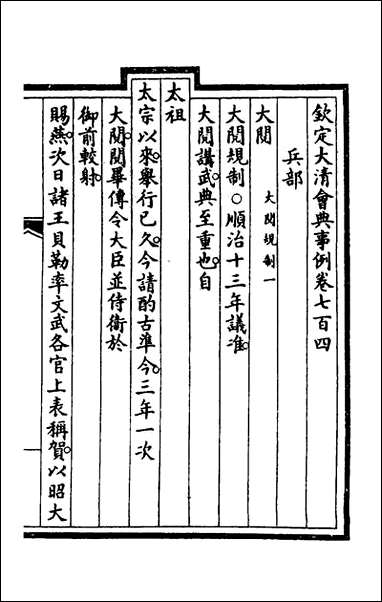 欽定大清會典事例卷七百四
兵部
大閱 大閱規制一
大閱規制○順治十三年議准
大閱講武典至重也自
太祖
太宗以來舉行已久今請酌古準今三年一次
大閱閱畢傳令大臣並侍衞於
御前較射
賜燕次日諸王貝勒率文武各官上表稱賀以昭大